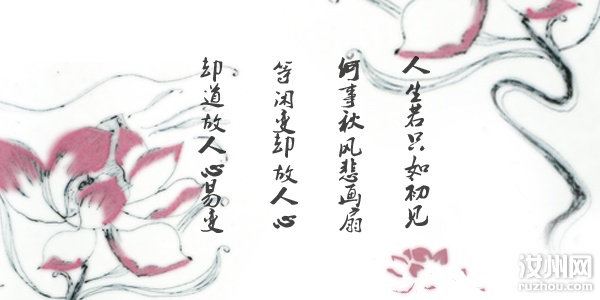 人生若只如初见
何事秋风悲画扇
等闲变却故人心
却道故人心易变
汝州网
ruzhou.com